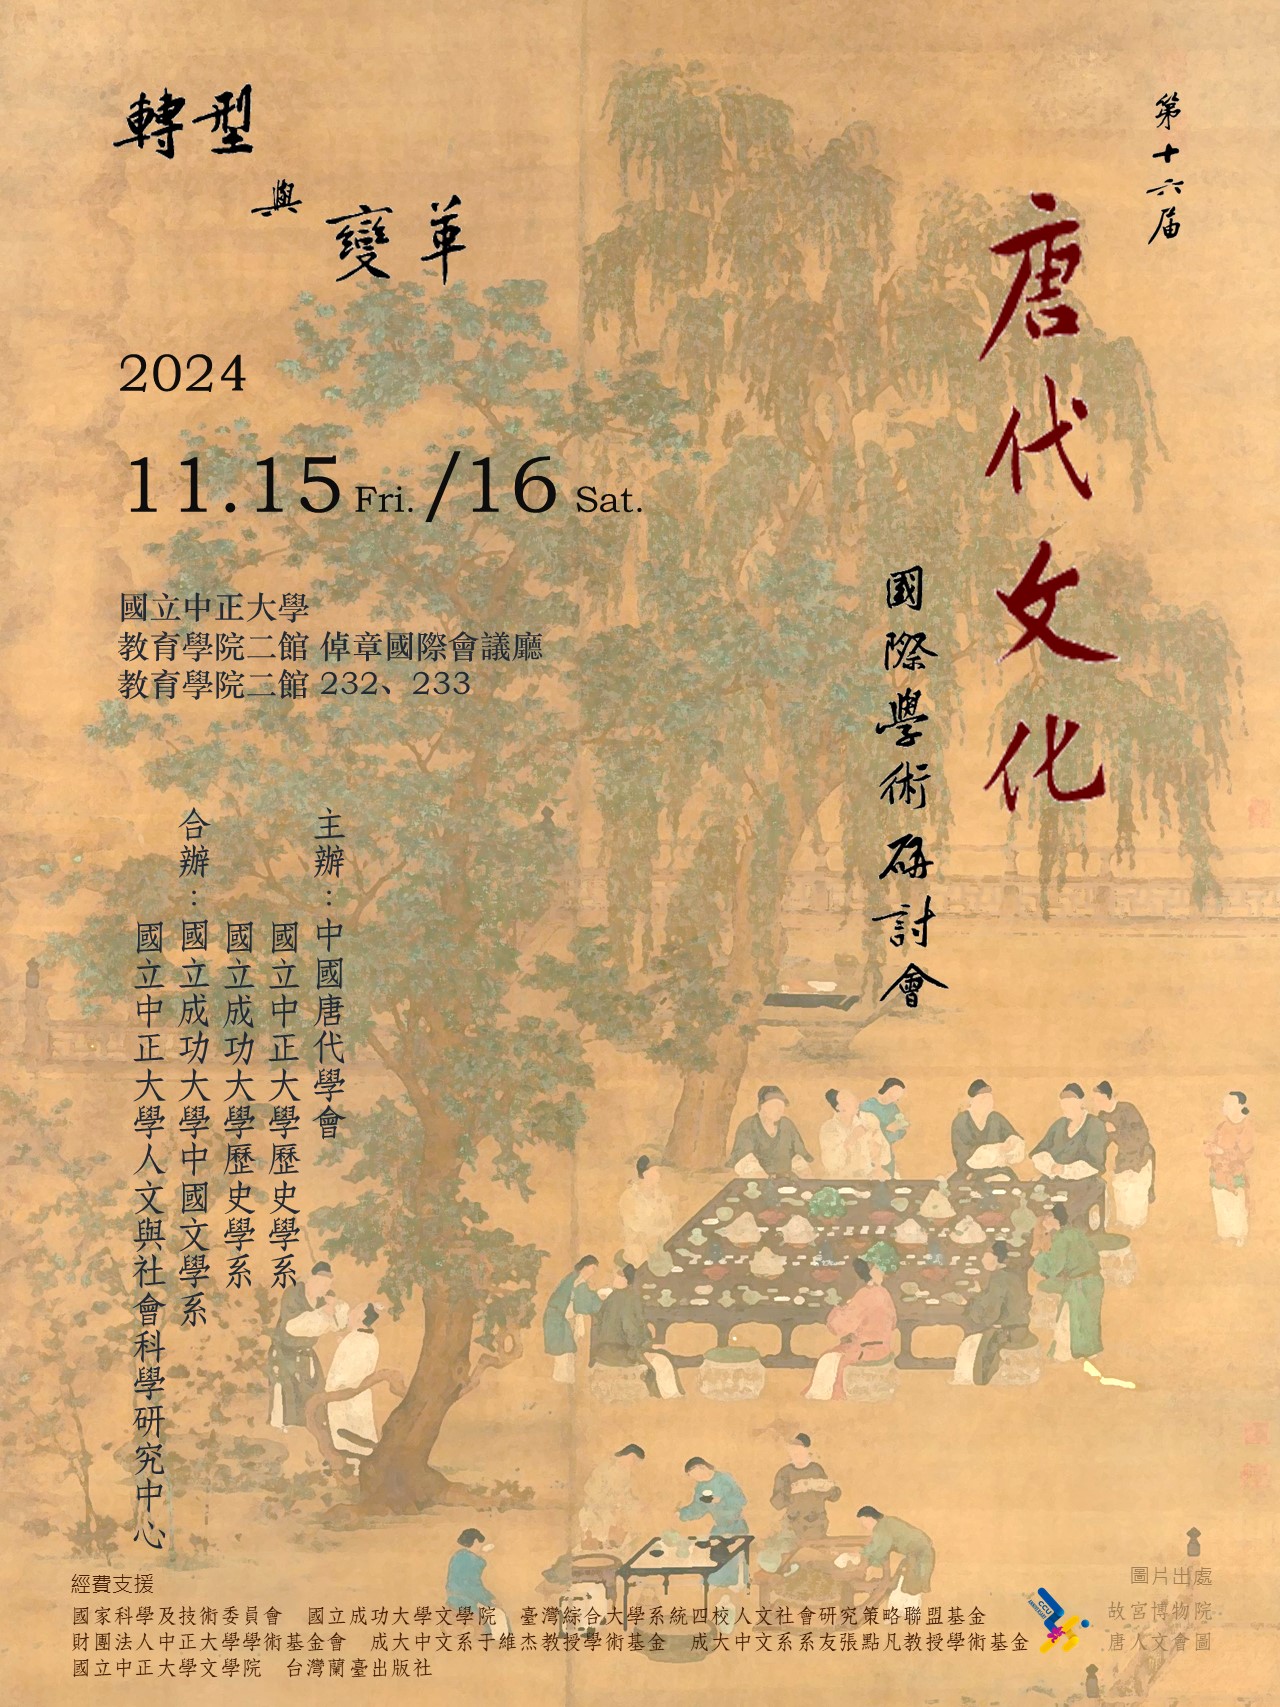 第十六屆
唐代文化
國際學術研討會
轉型
與
變革
2024
11.15 Fri. /16 Sat.
國立中正大學
教育學院二館 倬章國際會議廳
教育學院二館 232、233
主辦：中國唐代學會
國立中正大學歷史學系
國立成功大學歷史學系
合辦：國立成功大學中國文學系
國立中正大學人文與社會科學研究中心
經費支援
國家科學及技術委員會 國立成功大學文學院 臺灣綜合大學系統四校人文社會研究策略聯盟基金
財團法人中正大學學術基金會 成大中文系于維杰教授學術基金 成大中文系系友張點凡教授學術基金
國立中正大學文學院 台灣蘭臺出版社
CCU
圖片出處
故宮博物院
唐人文會圖